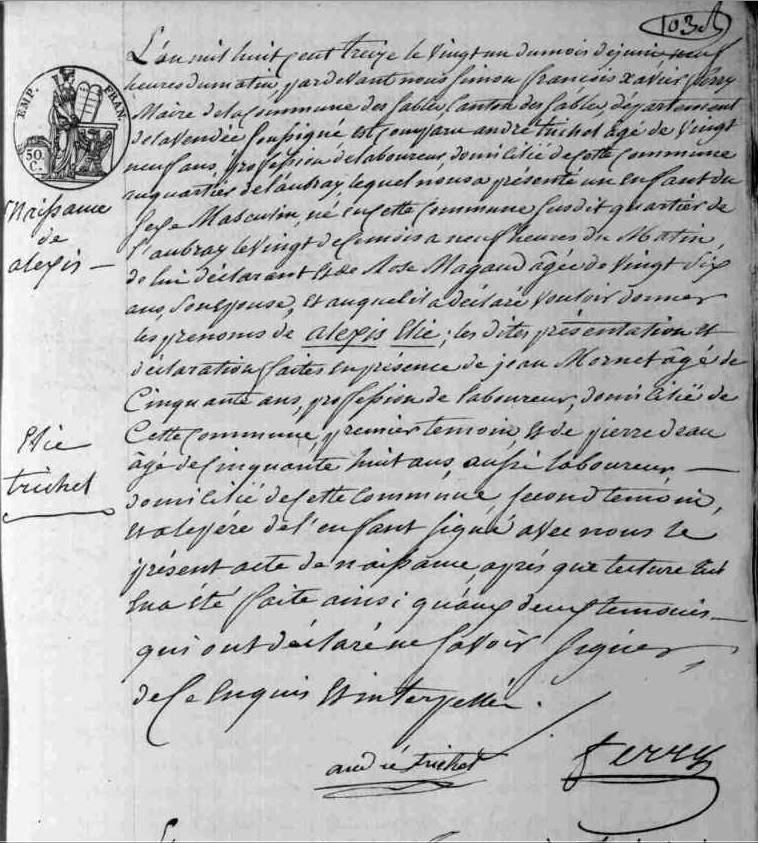 103
EMP. FRAN.
50 C.
L'an mil huit cent treize le vingt un du mois de juin neuf
heures du matin, pardevant nous Simon françois xavier ferry
Maire de la Commune des Sables, Canton des Sables, département
de la vendée soussigné est comparu andré trichet âgé de vingt
neuf ans, profession de laboureur, domicilié de cette Commune
au quartier de l'aubray, lequel nous a présenté un enfant du
Sexe Masculin, né en cette Commune susdit quartier de
l'aubray le vingt de ce mois a neuf heures du Matin,
de lui déclarant et de Rose Magaud âgée de vingt Six
ans, son épouse, et auquel il a déclaré vouloir donner
les prenoms de alexis Elie; les dites présentation et
déclaration faites en présence de jean Mornet âgé de
Cinquante ans, profession de laboureur, domicilié de
Cette Commune, premier temoin, et de pierre deau
âgé de cinquante huit ans, aussi laboureur —
domicilié de cette Commune, second temoin,
et a le père de l'enfant signé avec nous le
présent acte de naissance, après que lecture lui
en a été faite ainsi qu'aux deux temoins —
qui ont déclaré ne savoir signer,
de ce enquis et interpellé.
Naissance
de
alexis —
Elie
trichet
andré trichet
ferry